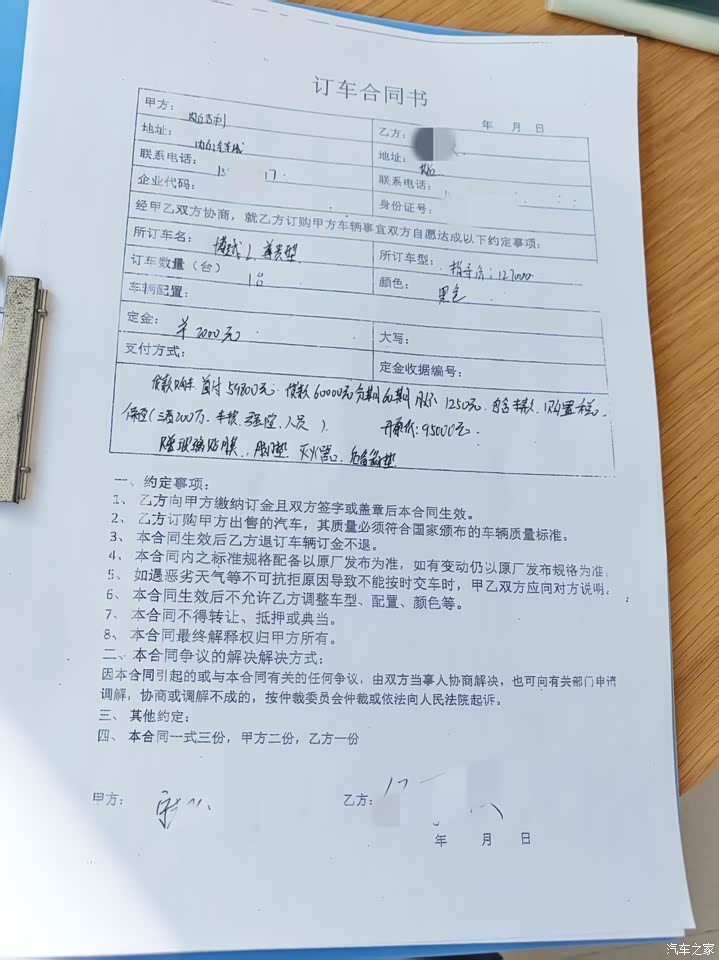 订车合同书
年 月 日
甲方： 内丘吉利
乙方：
地址：
地址：
联系电话： 17
联系电话：
企业代码：
身份证号：
经甲乙双方协商，就乙方订购甲方车辆事宜双方自愿达成以下约定事项：
所订车名： 博越L 尊贵型
所订车型： 指导价：127000
订车数量（台） 1台
颜色： 黑色
车辆配置：
定金： ¥2000元
大写：
支付方式：
定金收据编号：
贷款购车 首付59800元. 贷款60000元 60期 月供 1250元. 包含车款，购置税.
保险（三者200万. 车损. 人员）. 开票价：95000元.
赠玻璃贴膜. 脚垫. 灭火器.
一、约定事项：
1、 乙方向甲方缴纳订金且双方签字或盖章后本合同生效。
2、 乙方订购甲方出售的汽车，其质量必须符合国家颁布的车辆质量标准。
3、 本合同生效后乙方退订车辆订金不退。
4、 本合同内之标准规格配备以原厂发布为准，如有变动仍以原厂发布规格为准.
5、 如遇恶劣天气等不可抗拒原因导致不能按时交车时，甲乙双方应向对方说明.
6、 本合同生效后不允许乙方调整车型、配置、颜色等。
7、 本合同不得转让、抵押或典当。
8、 本合同最终解释权归甲方所有。
二、本合同争议的解决解决方式：
因本合同引起的或与本合同有关的任何争议，由双方当事人协商解决，也可向有关部门申请
调解，协商或调解不成的，按仲裁委员会仲裁或依法向人民法院起诉。
三、 其他约定：
四、 本合同一式三份，甲方二份，乙方一份
甲方：
乙方：
年 月 日
汽车之家